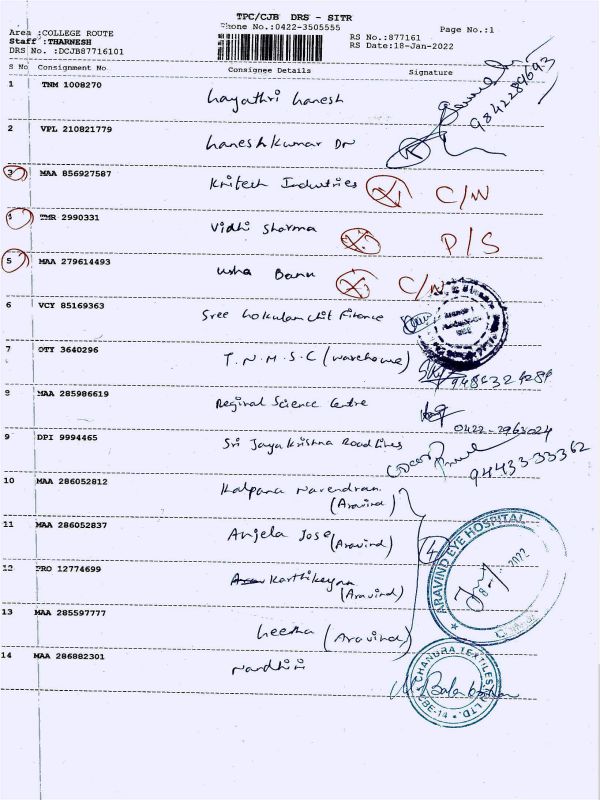 TPC/CJB DRS - SITR
Phone No.:0422-3505555
Page No.:1
Area :COLLEGE ROUTE
Staff :THARNESH
DRS No. :DCJB87716101
RS No.:877161
RS Date:18-Jan-2022
S No Consignment No Consignee Details Signature
1 TNM 1008270 hayathri hanesh
9842289693
2 VPL 210821779 haneshkumar DN
3 MAA 856927587 Kritech Industries C/N
4 TMR 2990331 Vidhi Sharma P/S
5 MAA 279614493 Usha Banu C/N
6 VCY 85169363 Sree hokulam chit Finance
7 OTY 3640296 T.N.M.S.C (warehouse)
8 MAA 285986619 Reginal Science Centre
0422-2963024
9 DPI 9994465 Sri Jaya Krishna Roadlines
94433-33362
10 MAA 286052812 Kalpana Narendran
(Aravind)
11 MAA 286052837 Anjela Jose (Aravind)
4
12 PRO 12774699 Karthikeyan
(Aravind)
ARAVIND EYE HOSPITAL
2022
13 MAA 285597777 heetha (Aravind)
14 MAA 286882301 Nandhini
CHANDRA TEXTILES
LTD.
CBE-14